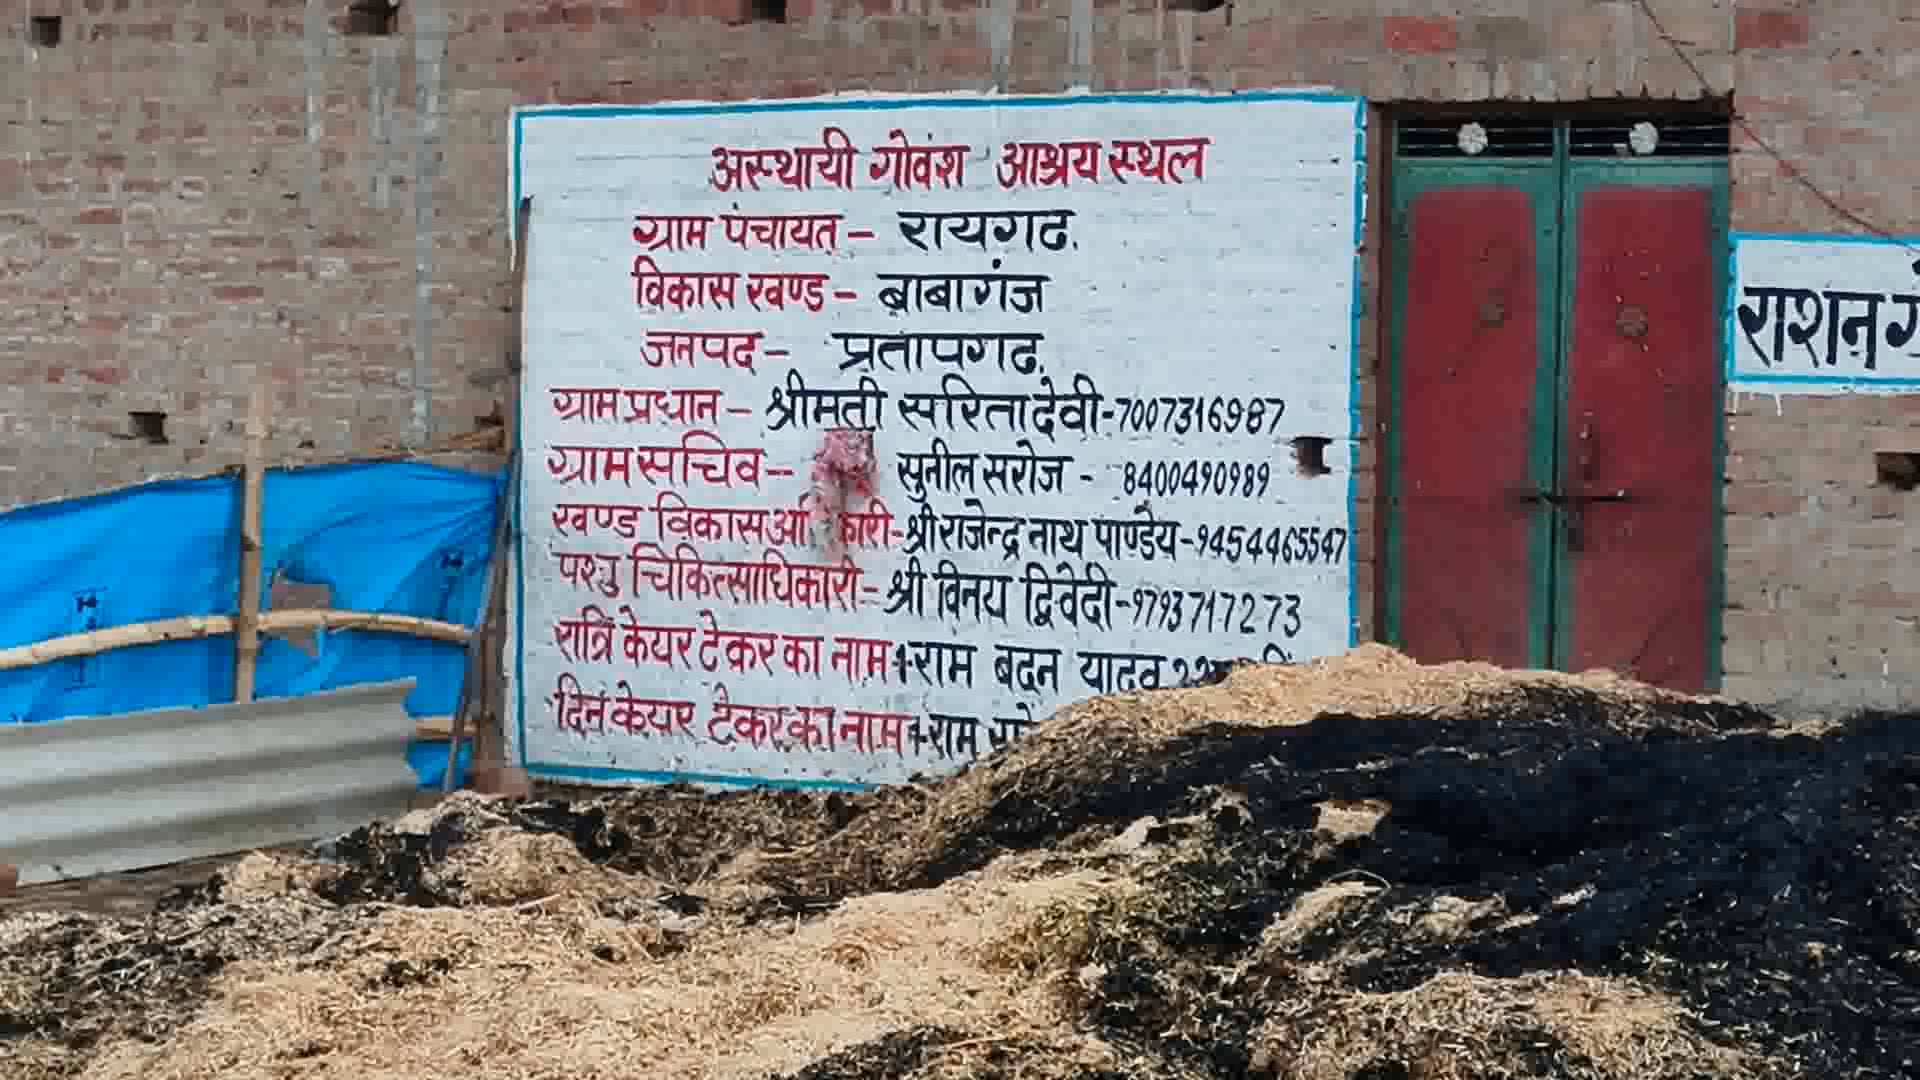 अस्थायी गोवंश आश्रय स्थल
ग्राम पंचायत – रायगढ.
विकास खण्ड – बाबागंज
जनपद – प्रतापगढ.
ग्राम प्रधान – श्रीमती सरिता देवी - 7007316987
ग्राम सचिव – सुनील सरोज - 8400490989
खण्ड विकास श्री राजेन्द्र नाथ पाण्डेय - 9454465547
पशु चिकित्साधिकारी - श्री विनय द्विवेदी - 9793717273
रात्रि केयर टेकर का नाम 1-राम बदन यादव
दिन केयर टेकर का नाम 1-राम
राशन